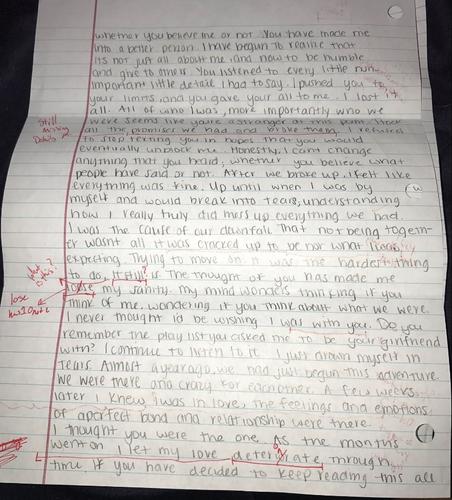 whether you believe me or not. You have made me
into a better person. I have begun to realize that
its not just all about me, and how to be humble
and give to others. You listened to every little nun-
important little detail I had to say. I pushed you to
your limits, and you gave your all to me. I lost it
all. All of who I was, more importantly who we
were seems like you're a stranger at this point.
all the promises we had and broke them. I refused
to stop texting you in hopes that you would
eventually unblock me. Honestly, I cant change
anything that you heard, whether you believe what
people have said or not. After we broke up, I felt like
everything was fine. Up until when I was by
myself and would break into tears, understanding
how I really truly did mess up everything we had.
I was the cause of our downfall. That not being togeth-
er wasnt all it was cracked up to be nor what I was
expecting. Trying to move on it was the hardest thing
to do, it still is. The thought of you has made me
loose my sanity. My mind wonders thinking if you
think of me. wondering if you think about what we were.
I never thought id be wishing I was with you. Do you
remember the play list you asked me to be your girlfriend
with? I continue to listen to it. I just drown myself in
tears. Almost a year ago, we had just begun this adventure.
we were there and crazy for eachother. A few weeks
later I knew I was in love, the feelings and emotions
of a perfect bond and relationship were there.
I thought you were the one. As the months
went on I let my love deteriorate through
time. If you have decided to keep reading this all
Still
missing
lose